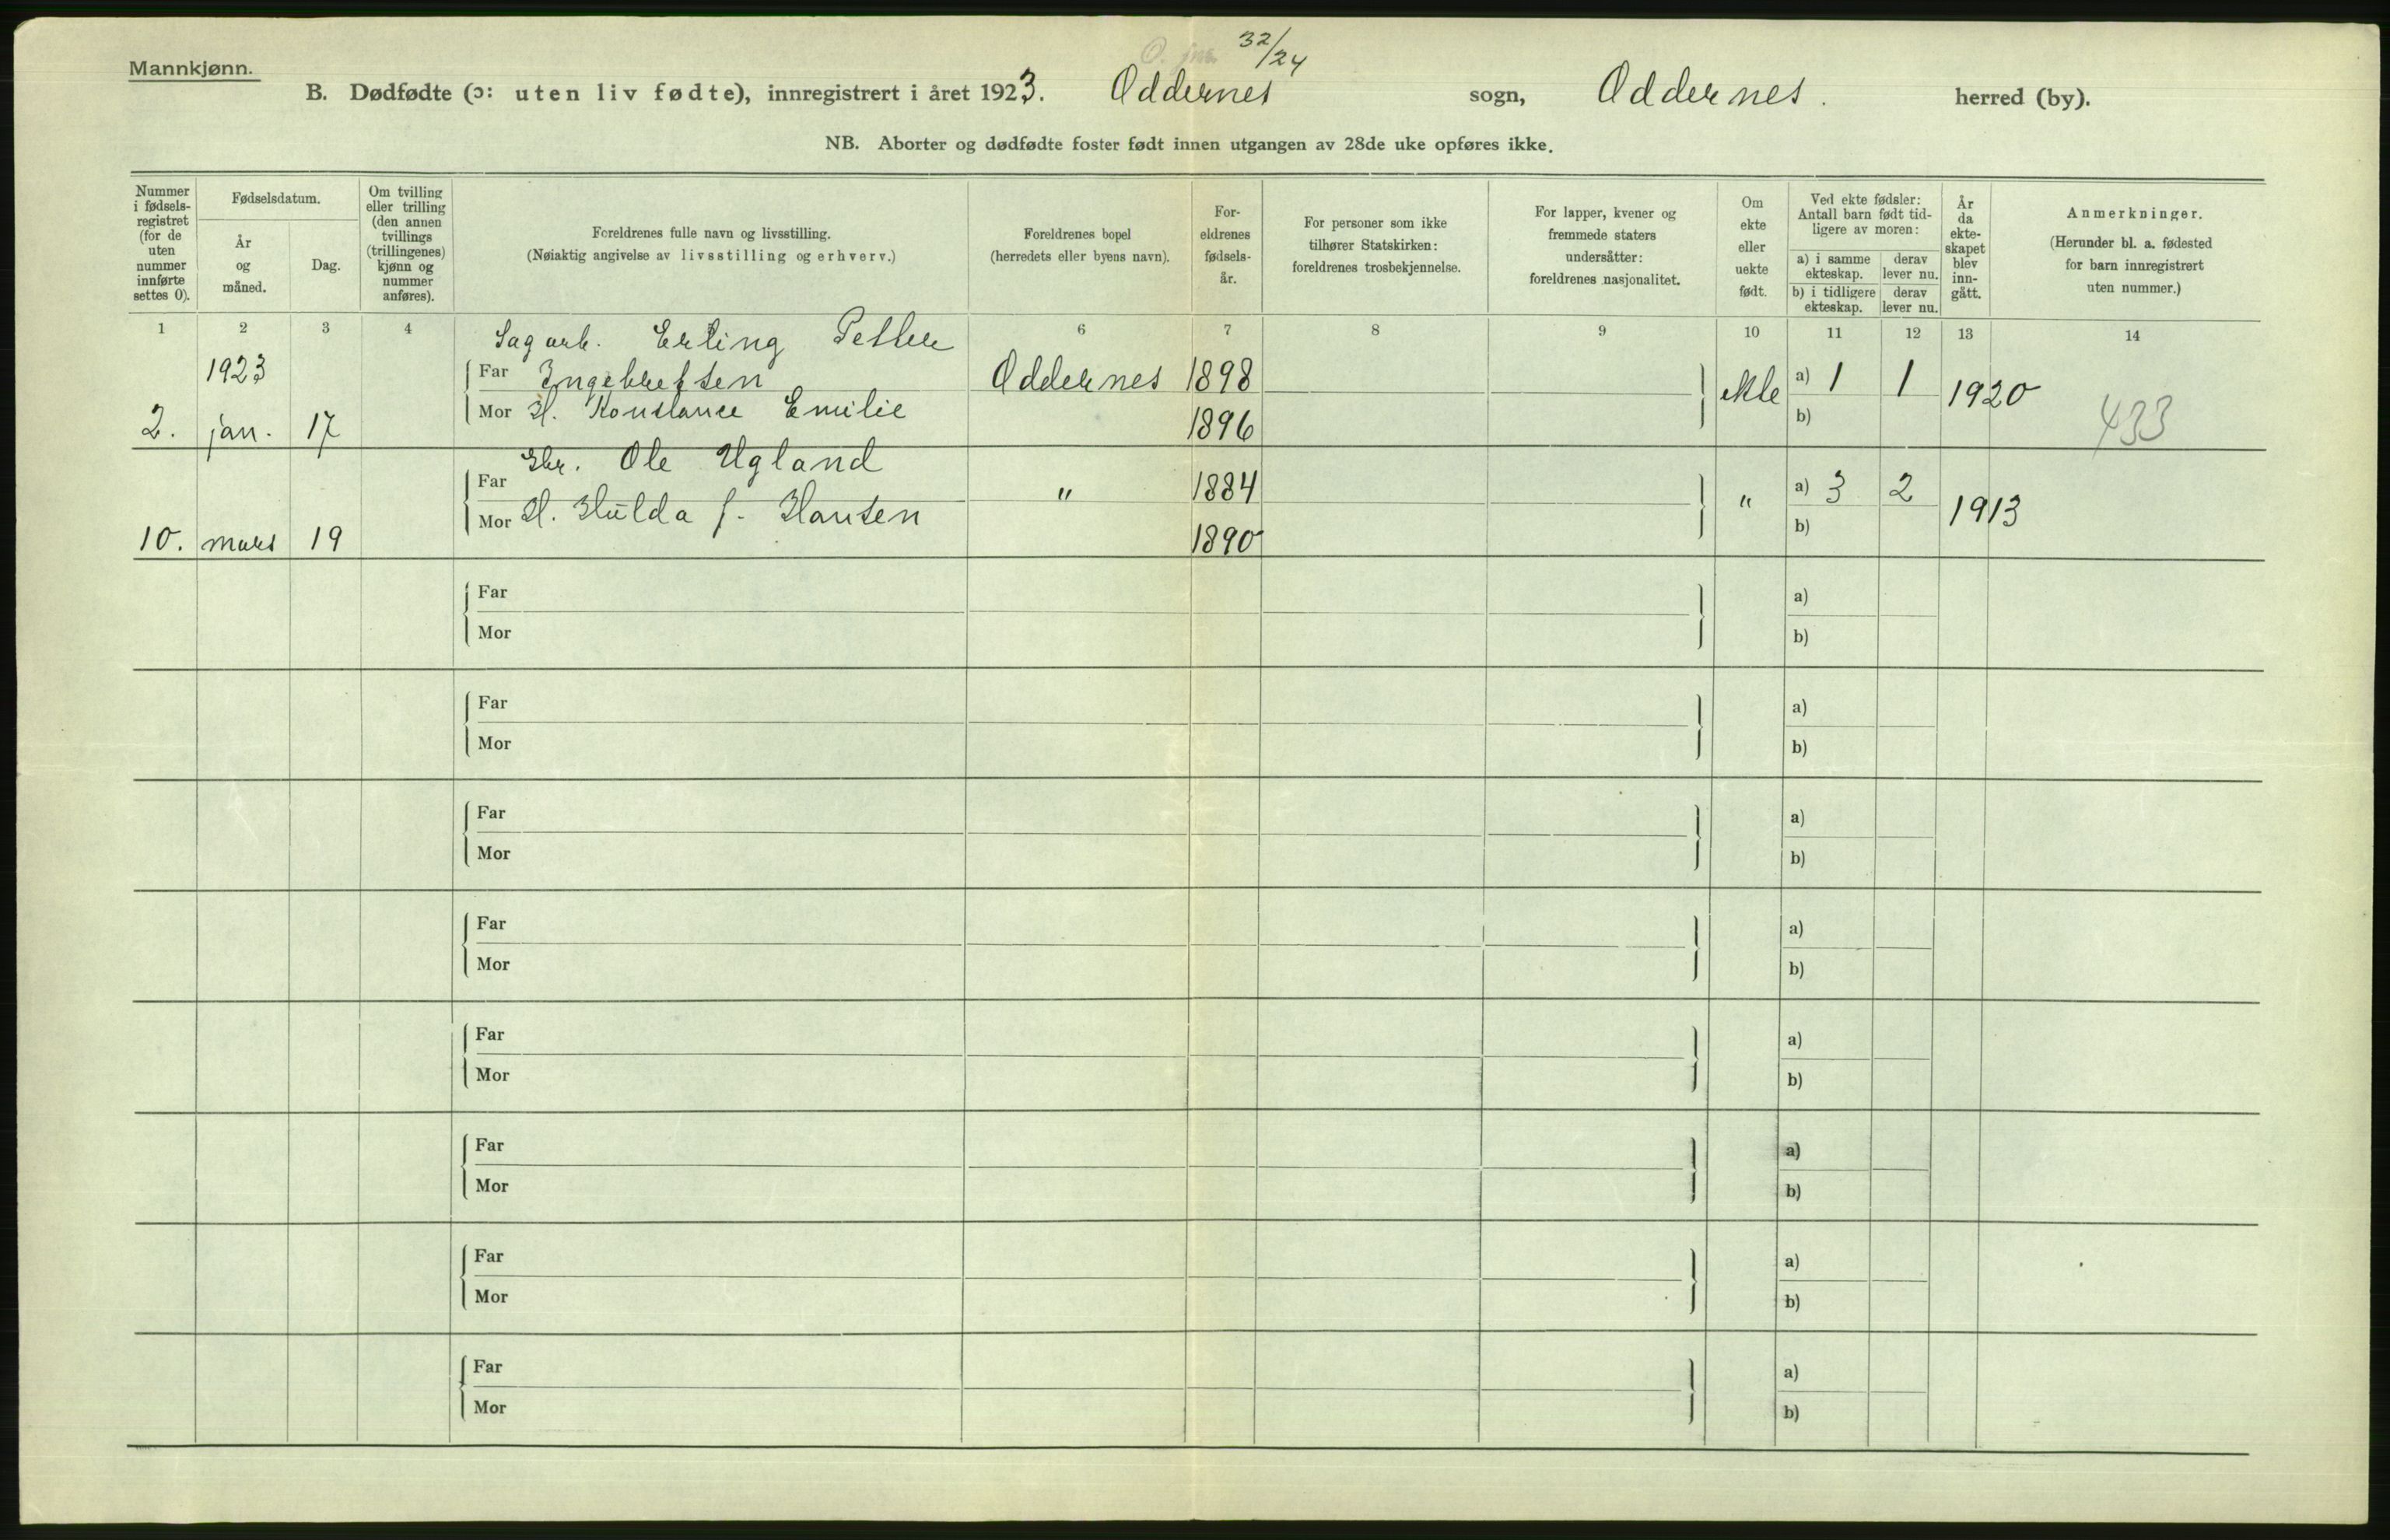 Mannkjønn.
32/24
B. Dødfødte (ɔ: uten liv fødte), innregistrert i året 1923. Oddernes sogn, Oddernes. herred (by).
NB. Aborter og dødfødte foster født innen utgangen av 28de uke opføres ikke.
Nummer i fødselsregistret (for de uten nummer innførte settes 0).
Fødselsdatum.
År og måned.
Dag.
Om tvilling eller trilling (den annen tvillings (trillingenes) kjønn og nummer anføres).
Foreldrenes fulle navn og livsstilling.
(Nøiaktig angivelse av livsstilling og erhverv.)
Foreldrenes bopel
(herredets eller byens navn).
Foreldrenes fødselsår.
For personer som ikke tilhører Statskirken: foreldrenes trosbekjennelse.
For lapper, kvener og fremmede staters undersåtter: foreldrenes nasjonalitet.
Om ekte eller uekte født.
Ved ekte fødsler: Antall barn født tidligere av moren:
a) i samme ekteskap. derav lever nu.
b) i tidligere ekteskap. derav lever nu.
År da ekteskapet blev inngått.
Anmerkninger.
(Herunder bl. a. fødested for barn innregistrert uten nummer.)
1 2 3 4 6 7 8 9 10 11 12 13 14
Sagarb. Erling Petter
1923 Far Engebretsen Oddernes 1898 ekte a) 1 1 1920
2. jan. 17 Mor H. Konstance Emilie 1896 b) 433
Ole Ugland
Far " 1884 " a) 3 2 1913
10. mars 19 Mor H. Hulda f. Hansen 1890 b)
Far a)
Mor b)
Far a)
Mor b)
Far a)
Mor b)
Far a)
Mor b)
Far a)
Mor b)
Far a)
Mor b)
Far a)
Mor b)
Far a)
Mor b)